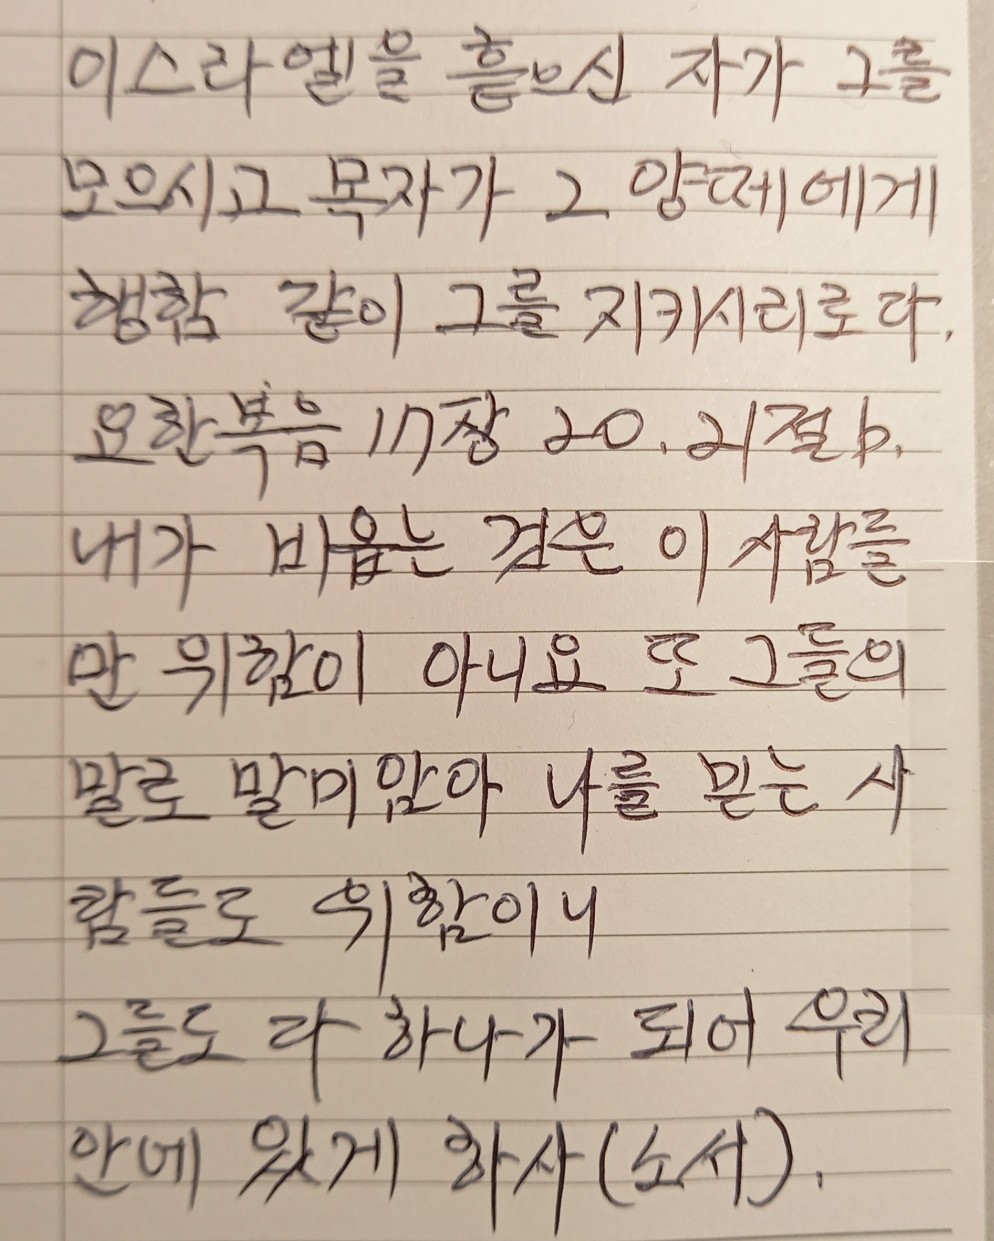 이스라엘을 흩으신 자가 그를
모으시고 목자가 그 양떼에게
행함 같이 그를 지키시리로다.
요한복음 17장 20. 21절 b.
내가 비옵는 것은 이 사람들
만 위함이 아니요 또 그들의
말로 말미암아 나를 믿는 사
람들도 위함이니
그들도 다 하나가 되어 우리
안에 있게 하사(노서).